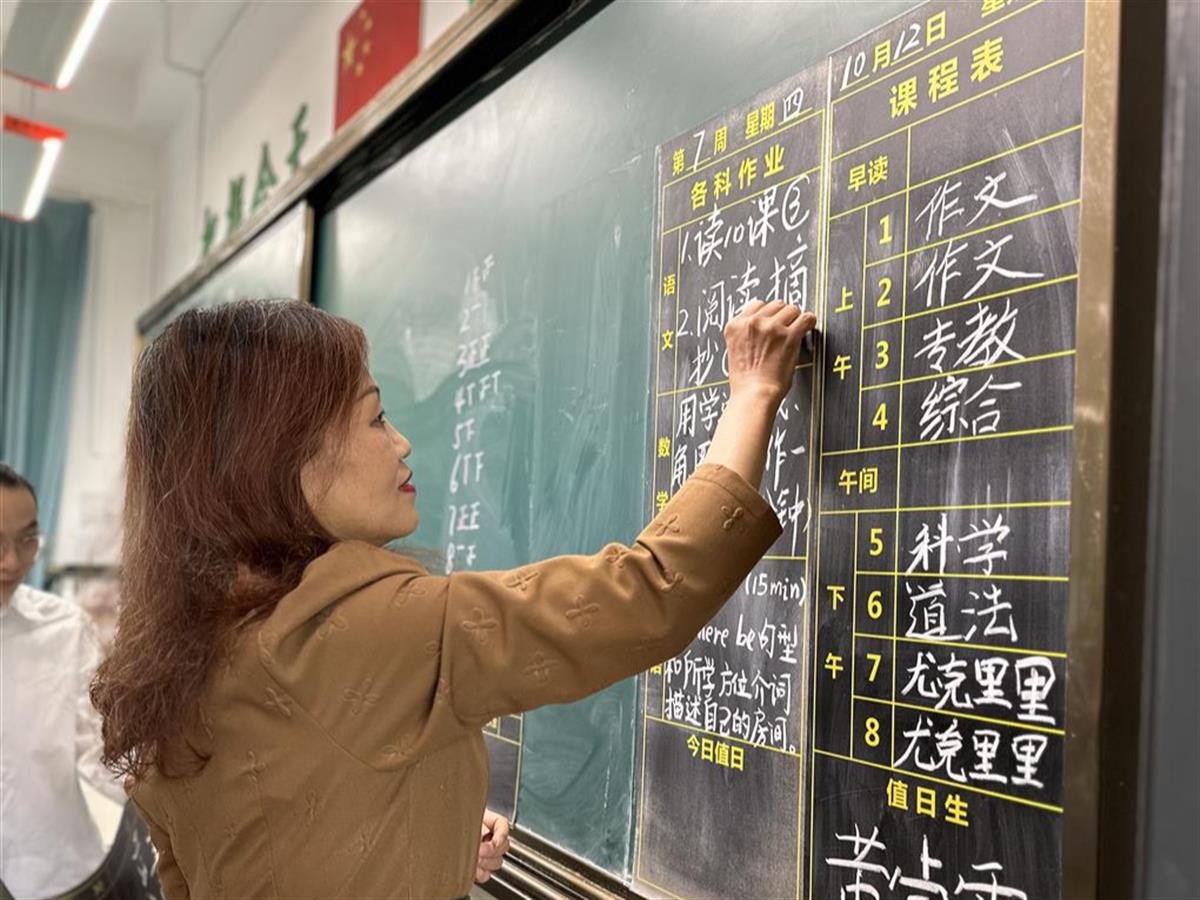 1F
3EE
4TFT
5F
6TF
7EE
第7周 星期四
各科作业
语文
1.读10课③
2.阅读摘
抄
数学
用学
角
作一
钟)
(15min)
here be句型
和所学方位介词
描述自己的房间。
今日值日
10月12日 星
课程表
早读
上午
1 作文
2 作文
3 专教
4 综合
午间
下午
5 科学
6 道法
7 尤克里里
8 尤克里里
值日生